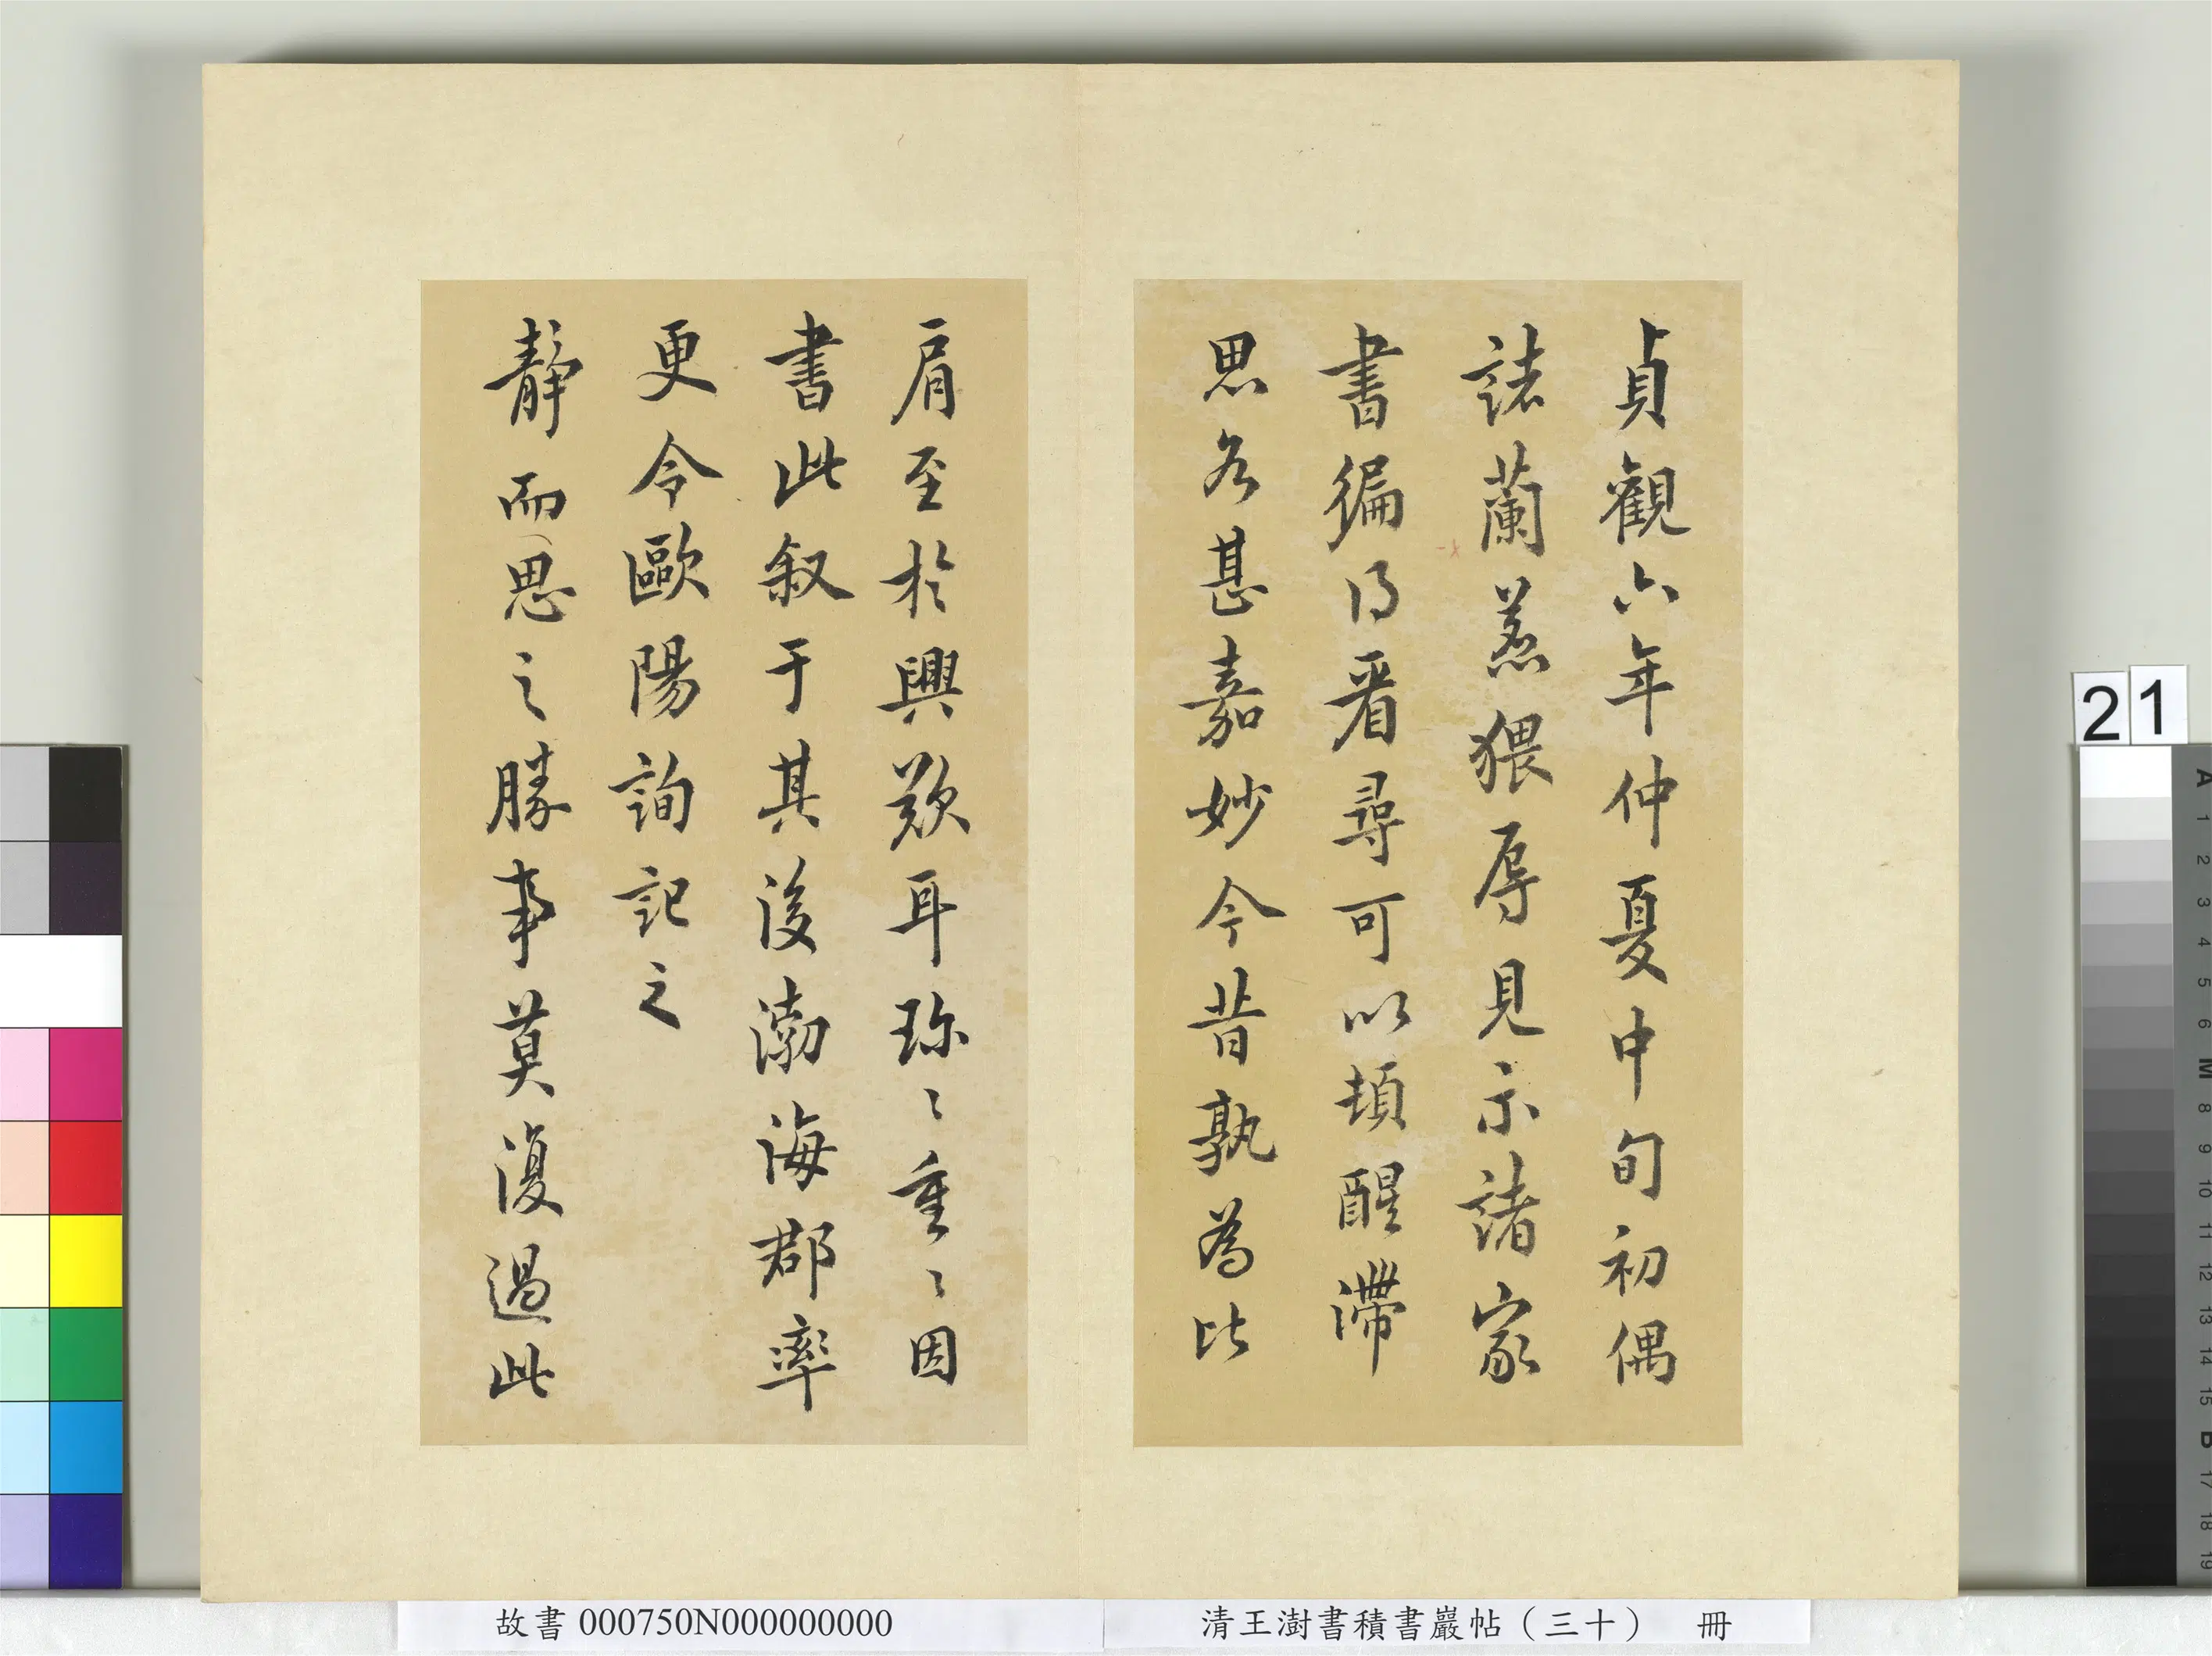 貞觀六年仲夏中旬初偶
誌蘭蒸猥辱見示諸家
書徧得看尋可以頓醒滯
思名甚嘉妙今昔孰為比
肩至於興歎耳珎〻重〻因
書此叙于其後渤海郡率
更令歐陽詢記之
靜而思之勝事莫復過此
故書 000750N000000000
清王澍書積書巖帖（三十） 冊
21
A 1 2 3 4 5 6 M 8 9 10 11 12 13 14 15 B 17 18 19